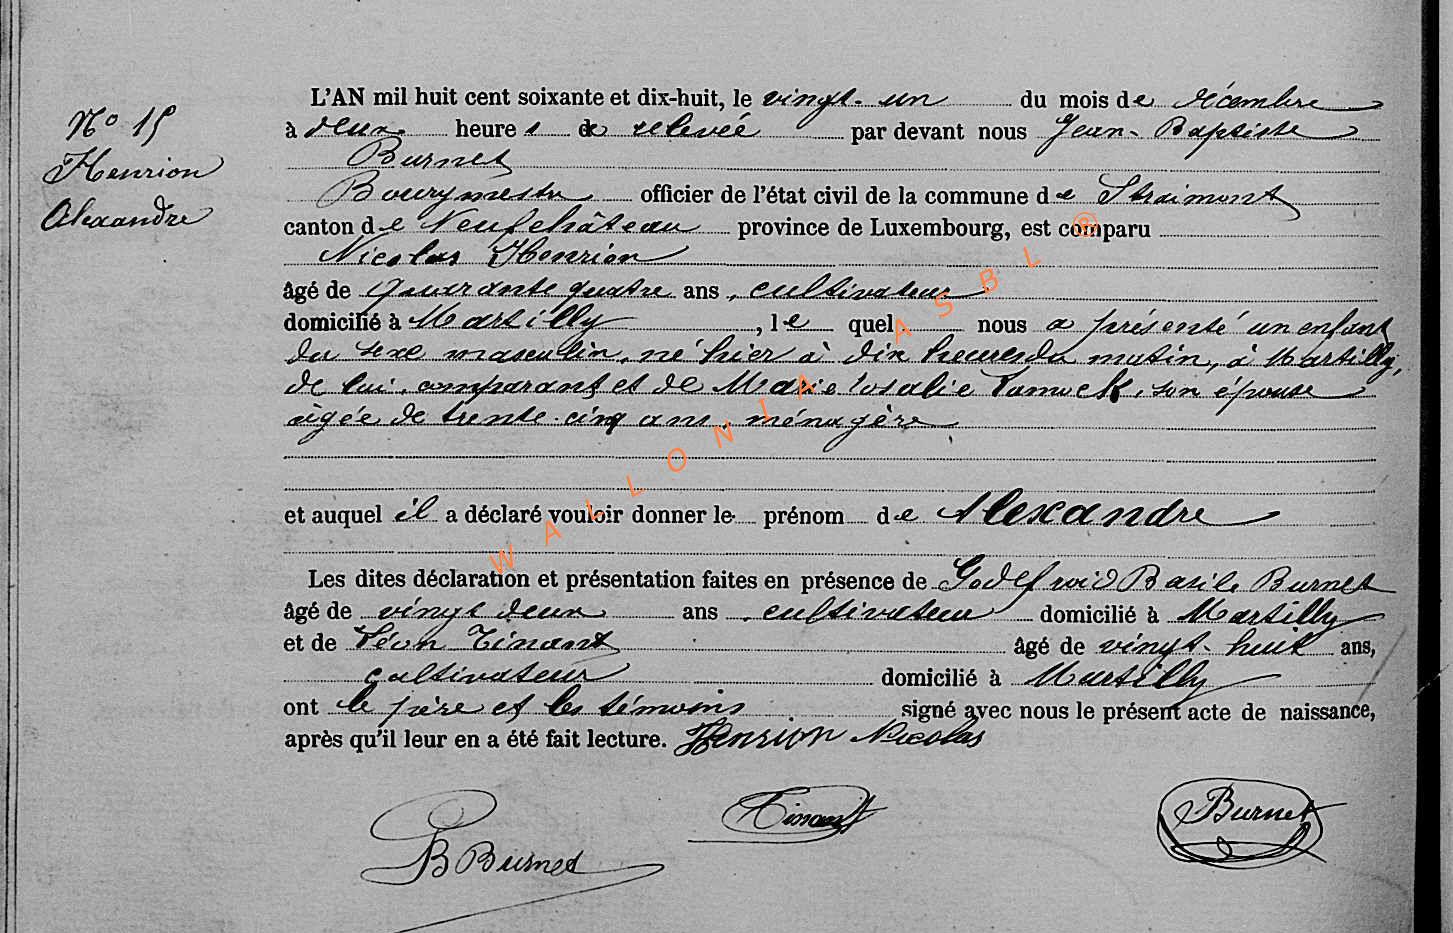 N° 15
Henrion
Alexandre
L'AN mil huit cent soixante et dix-huit, le vingt-un du mois de décembre
à deux heures de relevée par devant nous Jean-Baptiste
Burnet
Bourgmestre officier de l'état civil de la commune de Straimont
canton de Neufchâteau province de Luxembourg, est comparu
Nicolas Henrion
âgé de quarante quatre ans, cultivateur
domicilié à Martilly, lequel nous a présenté un enfant
du sexe masculin, né hier à dix heures du matin, à Martilly,
de lui comparant et de Marie Rosalie, son épouse
âgée de trente-cinq ans, ménagère
et auquel il a déclaré vouloir donner le prénom de Alexandre
Les dites déclaration et présentation faites en présence de Godefroid Basile Burnet
âgé de vingt deux ans, cultivateur domicilié à Martilly
et de Léon Tinant âgé de vingt-huit ans,
cultivateur domicilié à Martilly
ont le père et les témoins signé avec nous le présent acte de naissance,
après qu'il leur en a été fait lecture. Henrion Nicolas
B Burnet
Tinant
Burnet
WALLONIA ASBL ®